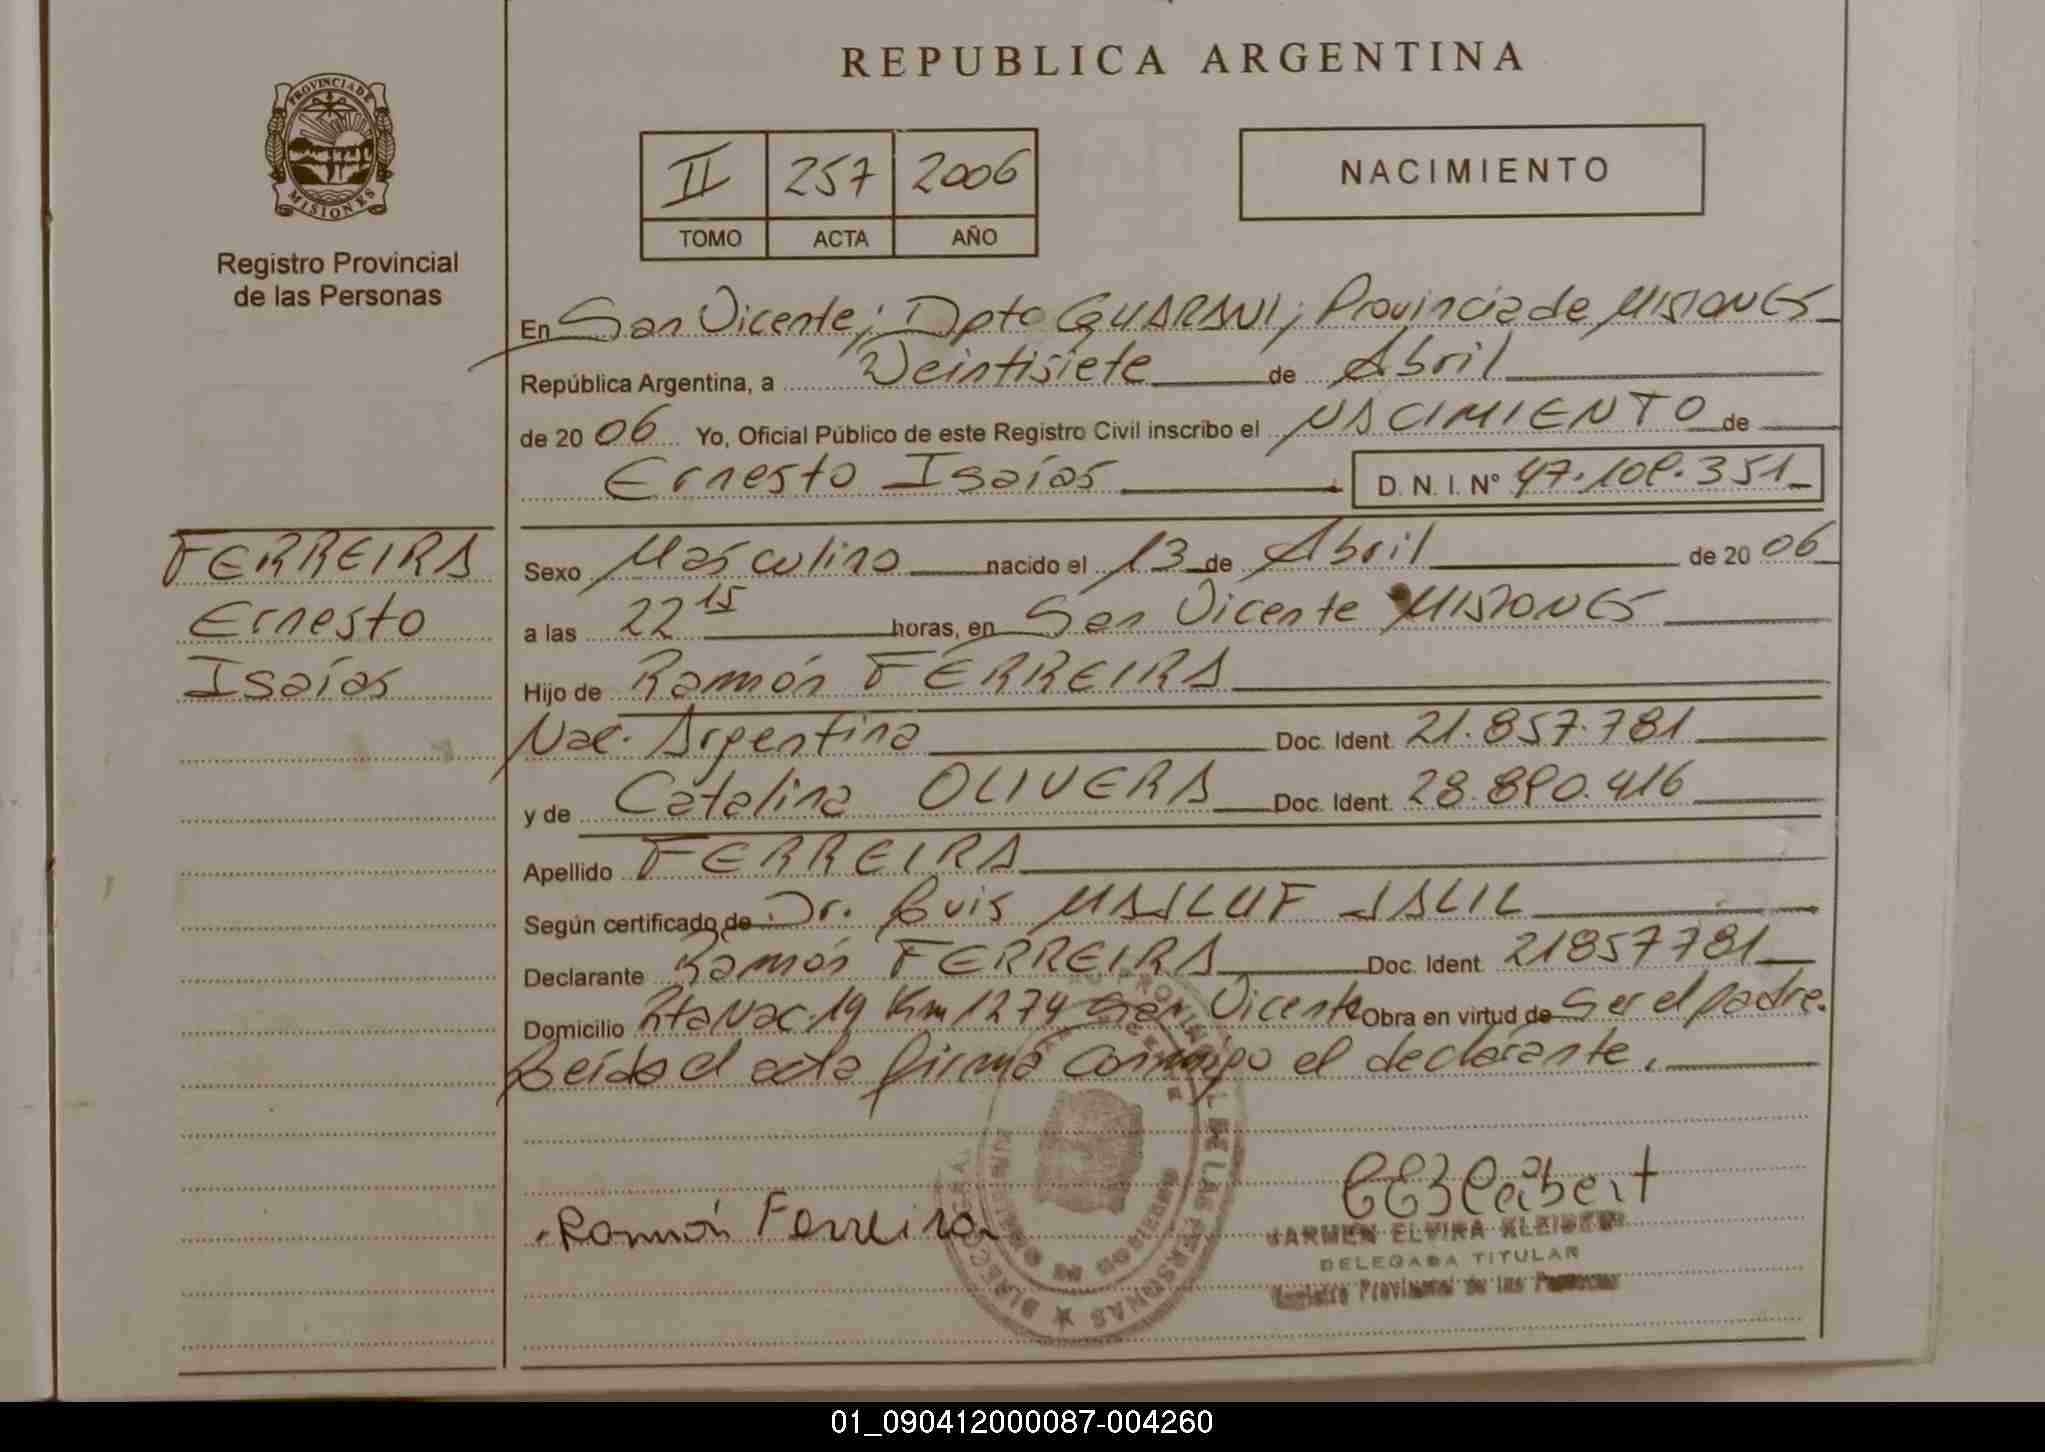 REPUBLICA ARGENTINA
PROVINCIA DE
MISIONES
Registro Provincial
de las Personas
II 257 2006
TOMO ACTA AÑO
NACIMIENTO
En San Vicente; Dpto GUARANI; Provincia de MISIONES
República Argentina, a Veintisiete de Abril
de 20 06 Yo, Oficial Público de este Registro Civil inscribo el NACIMIENTO de
Ernesto Isaías D. N. I. Nº
FERREIRA
Ernesto
Isaías
Sexo Masculino nacido el 13 de Abril de 20 06
a las 22 15 horas, en San Vicente MISIONES
Hijo de Ramón FERREIRA
Nac. Argentina Doc. Ident. 21.857.781
y de Catalina OLIVERA Doc. Ident.
Apellido FERREIRA
Según certificado de Dr. Luis MASLUF JALIL
Declarante Ramón FERREIRA Doc. Ident. 21857781
Domicilio Rta Nac. 14 Km 1274 San Vicente Obra en virtud de Ser el padre.
Leída el acta firma conmigo el declarante.
Ramón Ferreira
CARMEN ELVIRA
DELEGADA TITULAR
Registro Provincial de las Personas
01_090412000087-004260